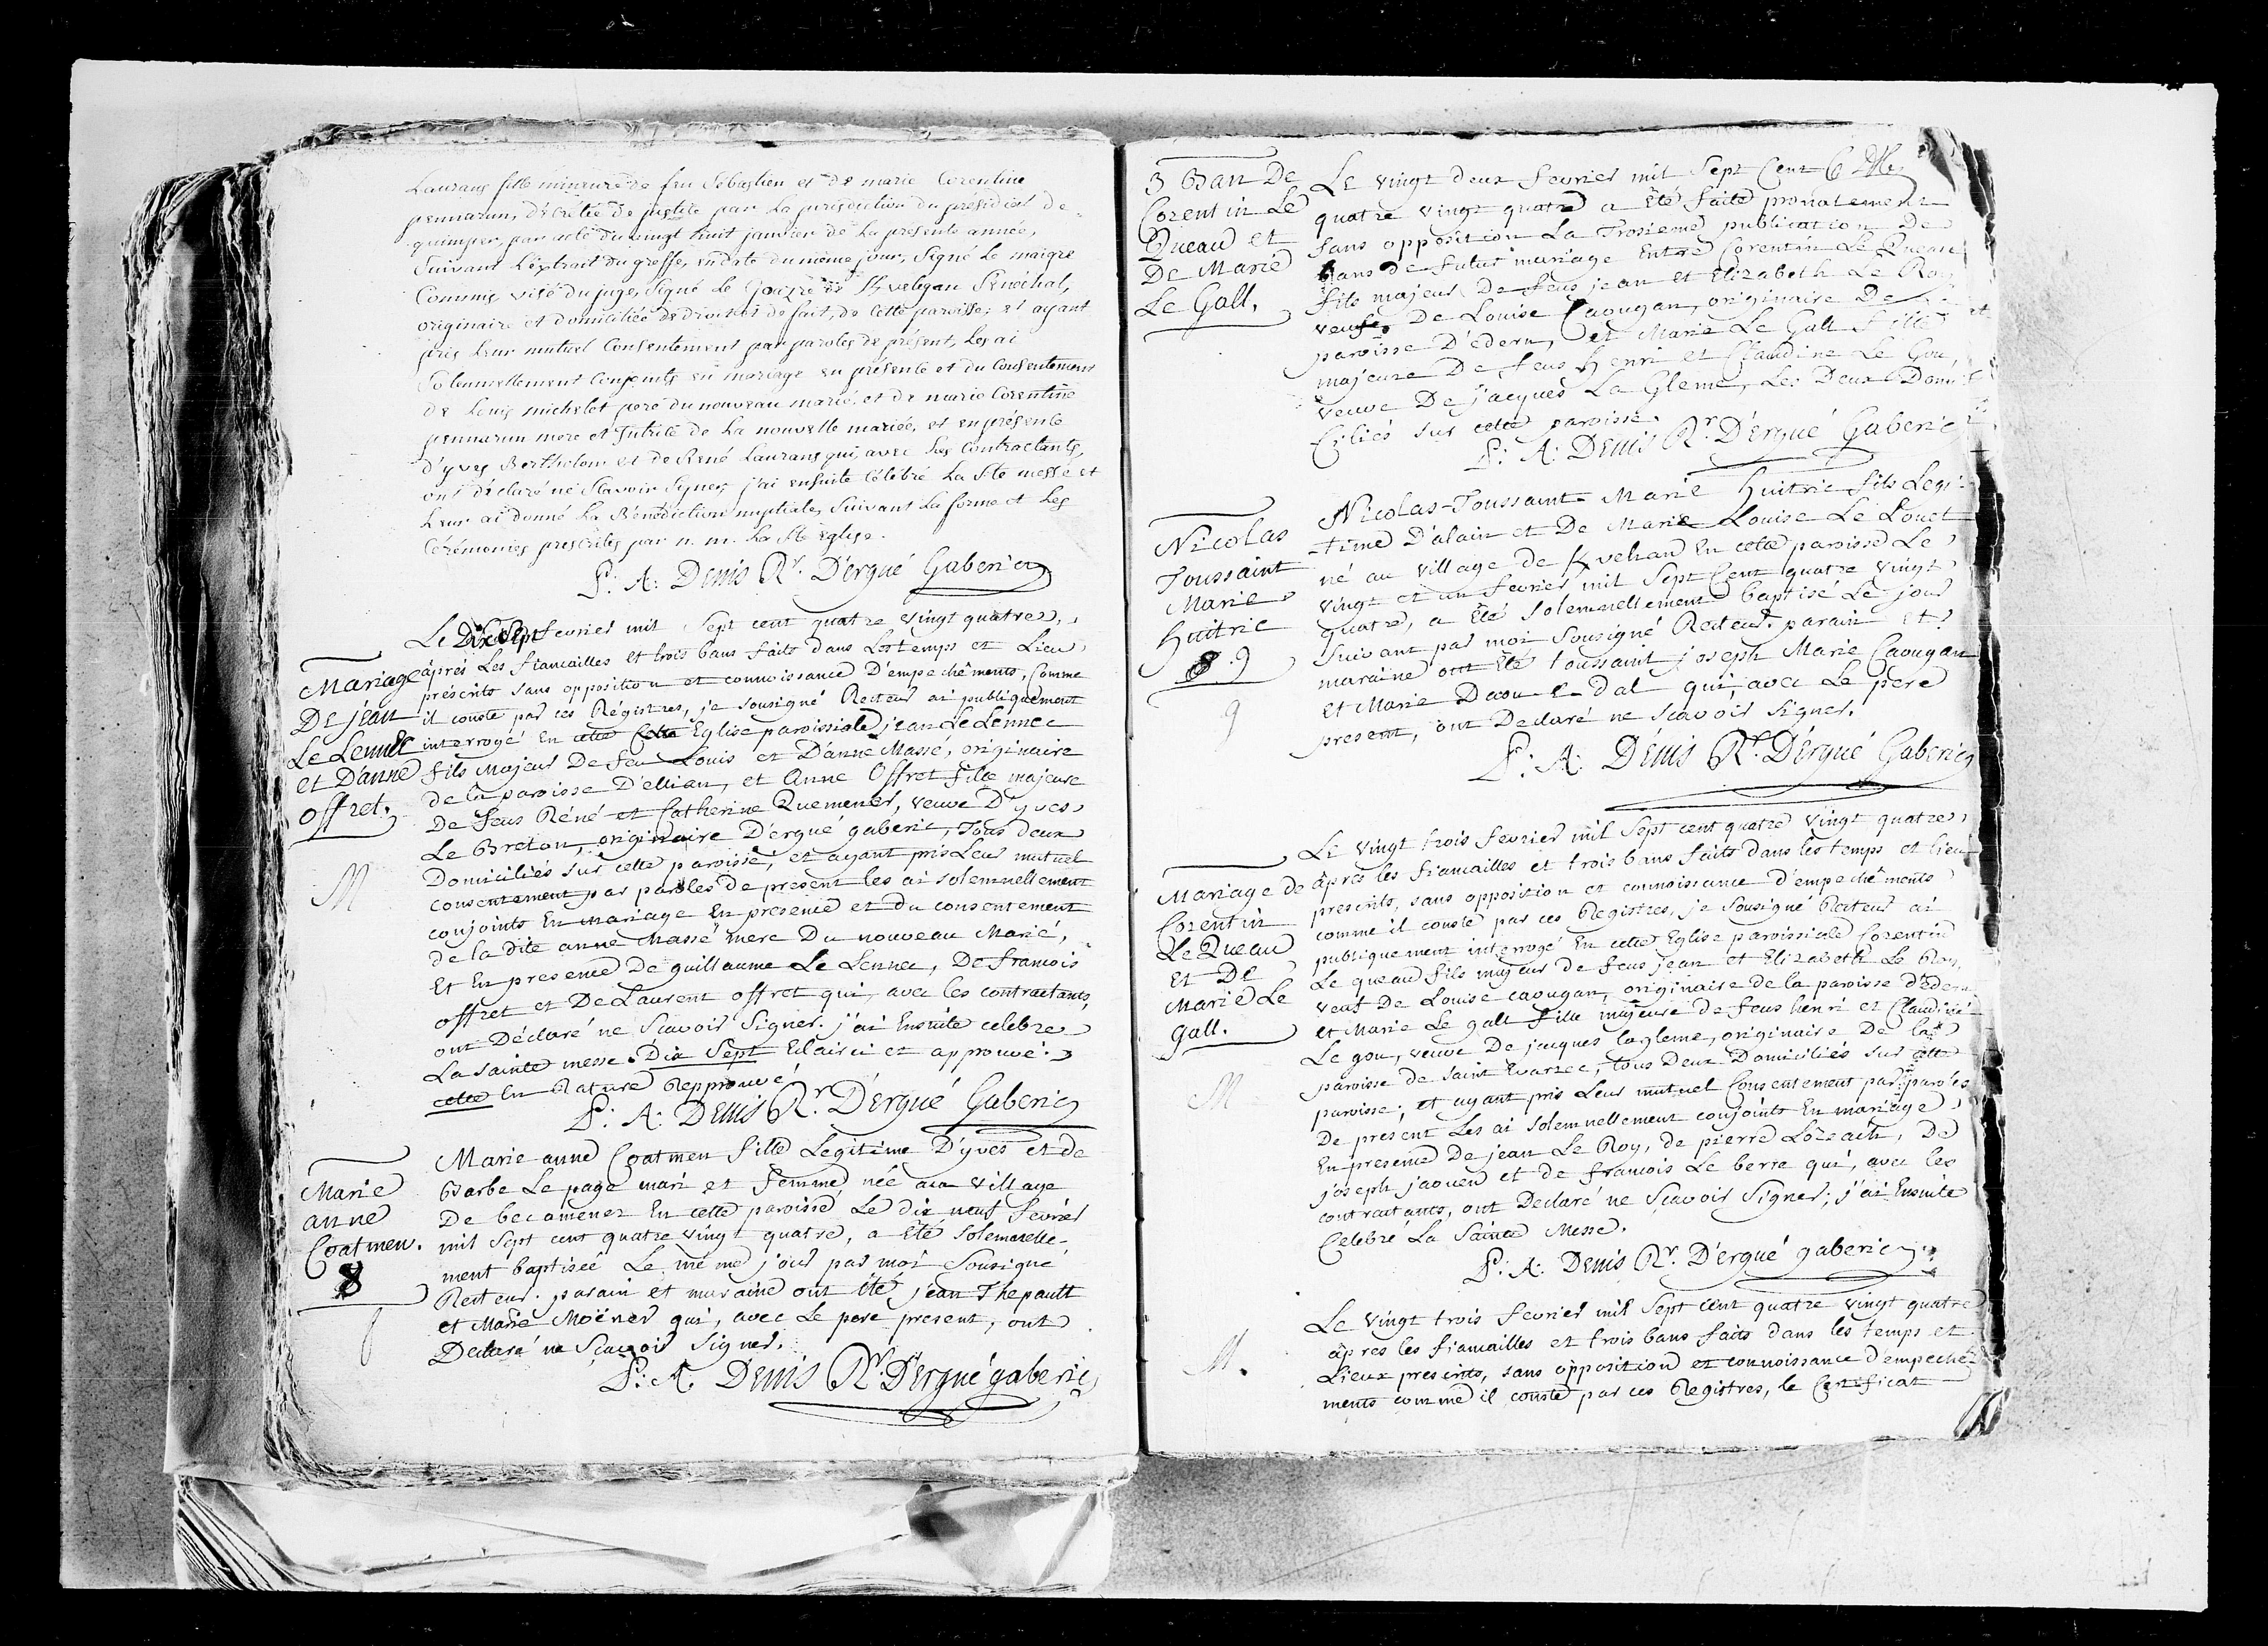 Laurans fille mineure de feu Sébastien et de marie Corentine
pennarun, décrétée de justice par la jurisdiction du présidial de
quimper, par acte du vingt huit janvier de la présente année,
Suivant l'éxtrait du greffe, en date du même jour, Signé Le maigre
Commis visé du juge, Signé Le Sénéchal,
originaire et domiciliée de droit et de fait, de cette paroisse; et ayant
pris leur mutuel Consentement par paroles de présent, Les ai
Solennellement Conjoints en mariage en présence et du Consentement
de Louis michelet pere du nouveau marié, et de marie Corentine
pennarun mere et tutrice de la nouvelle mariée, et en présence
d'yves Bertholom et de René Laurans qui, avec les Contractants,
ont déclaré ne Sçavoir Signer, j'ai ensuite Célébré La Ste messe et
leur ai donné la Bénédiction nuptiale, Suivant la forme et les
Cérémonies prescrites par n. m. la Ste Eglise.
P: A: Denis Rr. D'ergué Gaberic
Le Dix Sept fevrier mil Sept cent quatre vingt quatre,
Mariage
De jean
Le Lennec
et D'anne
offret.
M
âprés Les fiancailles et trois bans faits dans Les temps et Lieu
préscrits sans opposition et connoissance D'empechêments, Comme
il conste par ces Régistres, je sousigné Recteur ai publiquement
interrogé En cette Cette Eglise paroissiale jean Le Lennec
fils Majeur De feu Louis et D'anne Massé, originaire
de la paroisse D'ellian, et Anne Offret fille majeure
De feus Réné et Catherine Quemener, veuve D'yves
Le Breton, originaire D'ergué gaberic, Tous deux
Domiciliés sur cette paroisse, et ayant pris Leur mutuel
consentement par paroles de present les ai solemnellement
conjoints En mariage En presence et du consentement
de la dite anne Massé mere Du nouveau Marié,
Et En presence De guillaume Le Lennec, De francois
offret et De Laurent offret qui, avec les contractants,
ont Déclaré ne Scavoir Signer. j'ai Ensuite celebre
La sainte messe. Dix Sept Eclairci et approuvé.
cette En Rature Repprouvé
P: A: Denis Rr. D'ergué Gaberic
Marie
anne
Coatmen.
8
Marie anne Coatmen fille Legitime D'yves et de
Barbe Le page mari et femme née au village
De becamenez En cette paroisse Le dix neuf fevrier
mil Sept cent quatre vingt quatre, a Eté solemnelle-
ment baptisée Le même jour par moi Sousigné
Recteur. parain et maraine ont été jean Thepault
et Marie Moënner qui, avec Le pere present, ont
Declaré ne Sçavoir Signer.
P: A. Denis Rr. D'ergué gaberic
3 Ban De
Corentin Le
Queau et
De Marie
Le Gall.
Le vingt deux fevrier mil Sept Cent
quatre vingt quatre a Eté faite pronalement
sans opposition La Troisieme publication De
bans de futur mariage Entre Corentin Le Queau
fils majeur De feus jean et Elizabeth Le Roy
veuf De Louise Caougan, originaire De
paroisse D'edern, et Marie Le Gall fille
majeure De feus henri et Claudine Le Gou,
veuve De jacques La Gleme, Les Deux Domi
ciliés sur cette paroisse.
P: A: Denis Rr. D'ergué Gaberic
Nicolas
Toussaint
Marie
huitric
9
9
Nicolas-Toussaint Marie huitric fils Legi-
time D'alain et De Marie Louise Le Louet
né au village de Kvehan En cette paroisse Le
vingt et un fevrier mil Sept Cent quatre vingt
quatre, a Eté solemnellement baptisé Le jour
suivant par moi Sousigné Recteur. parain et
maraine ont Eté toussaint joseph Marie Caougan
Et Marie Daou e dal qui, avec Le pere
present, ont Declaré ne Scavoir signer.
P: A: Denis Rr. D'ergué Gaberic
Mariage de
Corentin
Le Queau
Et De
Marie Le
gall.
M
Le vingt trois fevrier mil Sept cent quatre vingt quatre,
âprès les fiancailles et trois bans faits dans les temps et lieu
prescrits, sans opposition et connoissance d'empechêments
comme il conste par ces Registres, je Sousigné Recteur ai
publiquement interrogé En cette Eglise paroissiale Corentin
Le queau fils majeur de feus jean et Elizabeth Le Roy,
veuf De Louise caougan, originaire de la paroisse d'Edern
et Marie Le gall fille majeure de feus henri et Claudine
Le gou, veuve De jacques lagleme, originaire De la
paroisse de saint Evarzec, tous Deux Domiciliés sur cette
paroisse; et ayant pris Leur mutuel Consentement par paroles
De present Les ai solemnellement conjoints En mariage
En presence De jean Le Roy, de pierre Lozeach, De
joseph jaouen et de francois Le berre qui, avec les
contractants, ont Declaré ne Scavoir Signer; j'ai Ensuite
Celebré La Sainte Messe.
P: A: Denis Rr. D'ergué gaberic
M.
Le vingt trois fevrier mil Sept cent quatre vingt quatre
âpres les fiancailles et trois bans faits dans les temps et
Lieux prescrits, sans opposition et connoissance d'empechê-
ments comme il conste par ces Registres, le Certificat